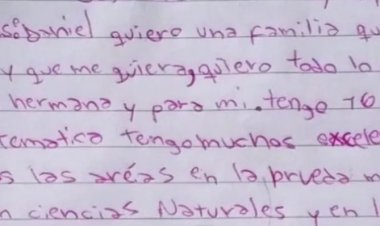 se Daniel quiero una familia qu
y que me quiera, quiero todo lo
hermana y para mi. tengo 10
tematica tengo muchos excele
s las aréas en la prueba m
n ciencias Naturales y en l